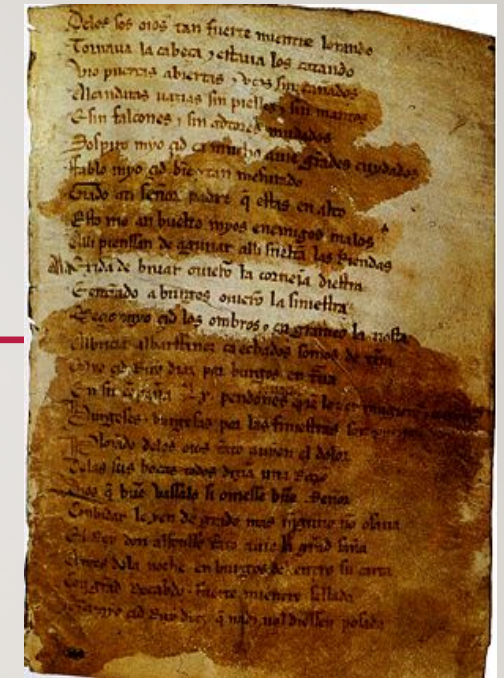 Delos sos oios tan fuerte mientre lorando
Tornaua la cabeça ⁊ estaua los catando
Vio puertas abiertas ⁊ vços sin cañados
Alcandaras uazias sin pielles ⁊ sin mantos
E sin falcones ⁊ sin adtores mudados
Sospiro myo çid ca mucho auie grãdes cuydados
Fablo myo çid bie ⁊ tan mesurado
Grado ati señor padre q̃ estas en alto
Esto me an buelto myos enemigos malos
Alli pienssan de aguiiar alli sueltã las Riendas
Ala exida de biuar ouierõ la corneia diestra
E entrãdo a burgos ouierõ la siniestra
Meçio myo çid los ombros ⁊ en grameo la tiesta
Albricia albarffanez ca echados somos de tierra
Myo çid Ruy diaz por burgos en
En su cõpaña Lx pendones
Burgeses ⁊ burgesas por las finiestras
Plorãdo delos oios tãto auyen el dolor
Delas sus bocas todos dizian una Razo
Dios q̃ bue vassalo si ouiesse bue Señor
Conbidar le yen de grado mas ninguno no osaua
El Rey don alfonsso tãto auie la grãd saña
Antes dela noche en burgos del entro su carta
Con grãd Recabdo ⁊ fuerte mientre sellada
Que a myo çid Ruy diaz q̃ nadi nol diessen posada